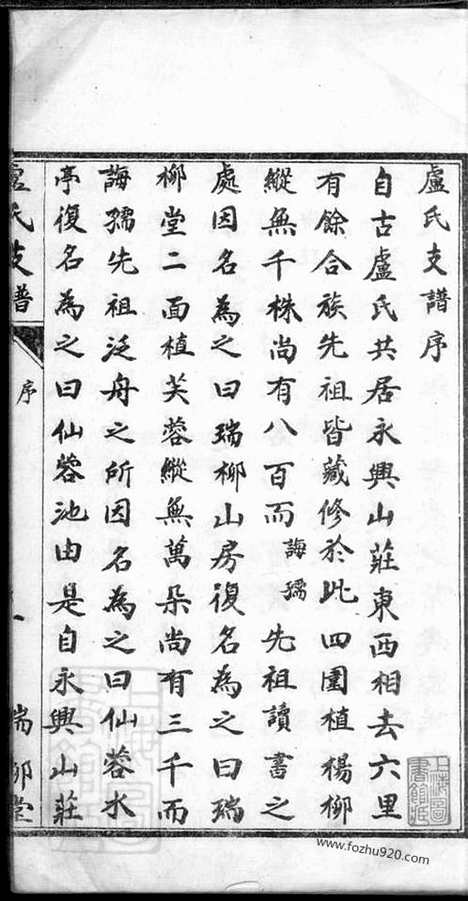 盧氏支譜序
自古盧氏共居永興山莊東西相去六里
有餘合族先祖皆藏修於此四圍植楊柳
縱無千株尚有八百而誨孺先祖讀書之
處因名為之曰瑞柳山房復名為之曰瑞
柳堂二面植芙蓉縱無萬朵尚有三千而
誨孺先祖泛舟之所因名為之曰仙蓉水
亭復名為之曰仙蓉池由是自永興山莊
盧氏支譜
序
一
瑞柳堂
上海圖書館藏
www.fozhu920.com